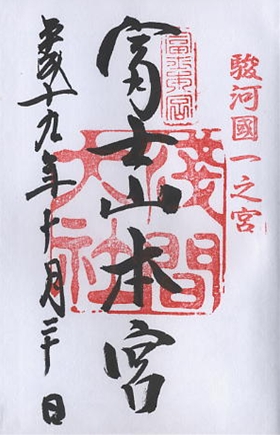 駿河國一之宮
富士山本宮
淺間大社
平成十九年十月二十日